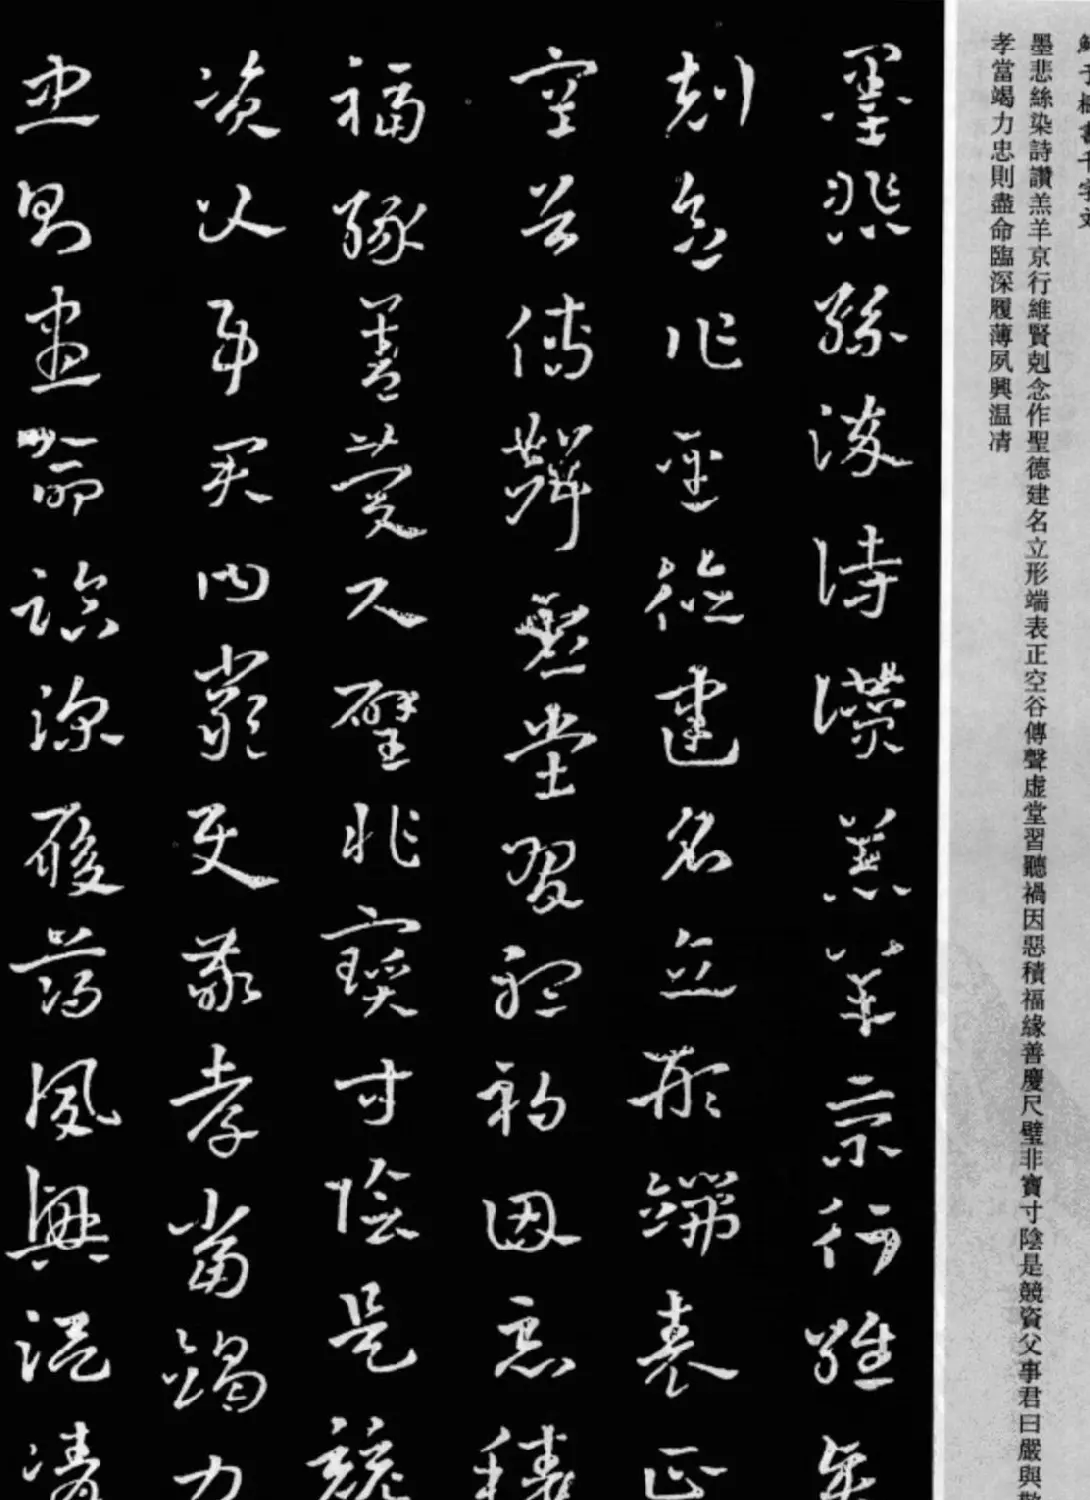 鮮于樞書千字文
墨悲絲染詩讚羔羊京行維賢剋念作聖德建名立形端表正空谷傳聲虛堂習聽禍因惡積福緣善慶尺璧非寶寸陰是競資父事君曰嚴與敬
孝當竭力忠則盡命臨深履薄夙興温凊
墨悲絲染詩讚羔羊京行維賢
剋念作聖德建名立形端表正
空谷傳聲虛堂習聽禍因惡積
福緣善慶尺璧非寶寸陰是競
資父事君曰嚴與敬孝當竭力
忠則盡命臨深履薄夙興温凊